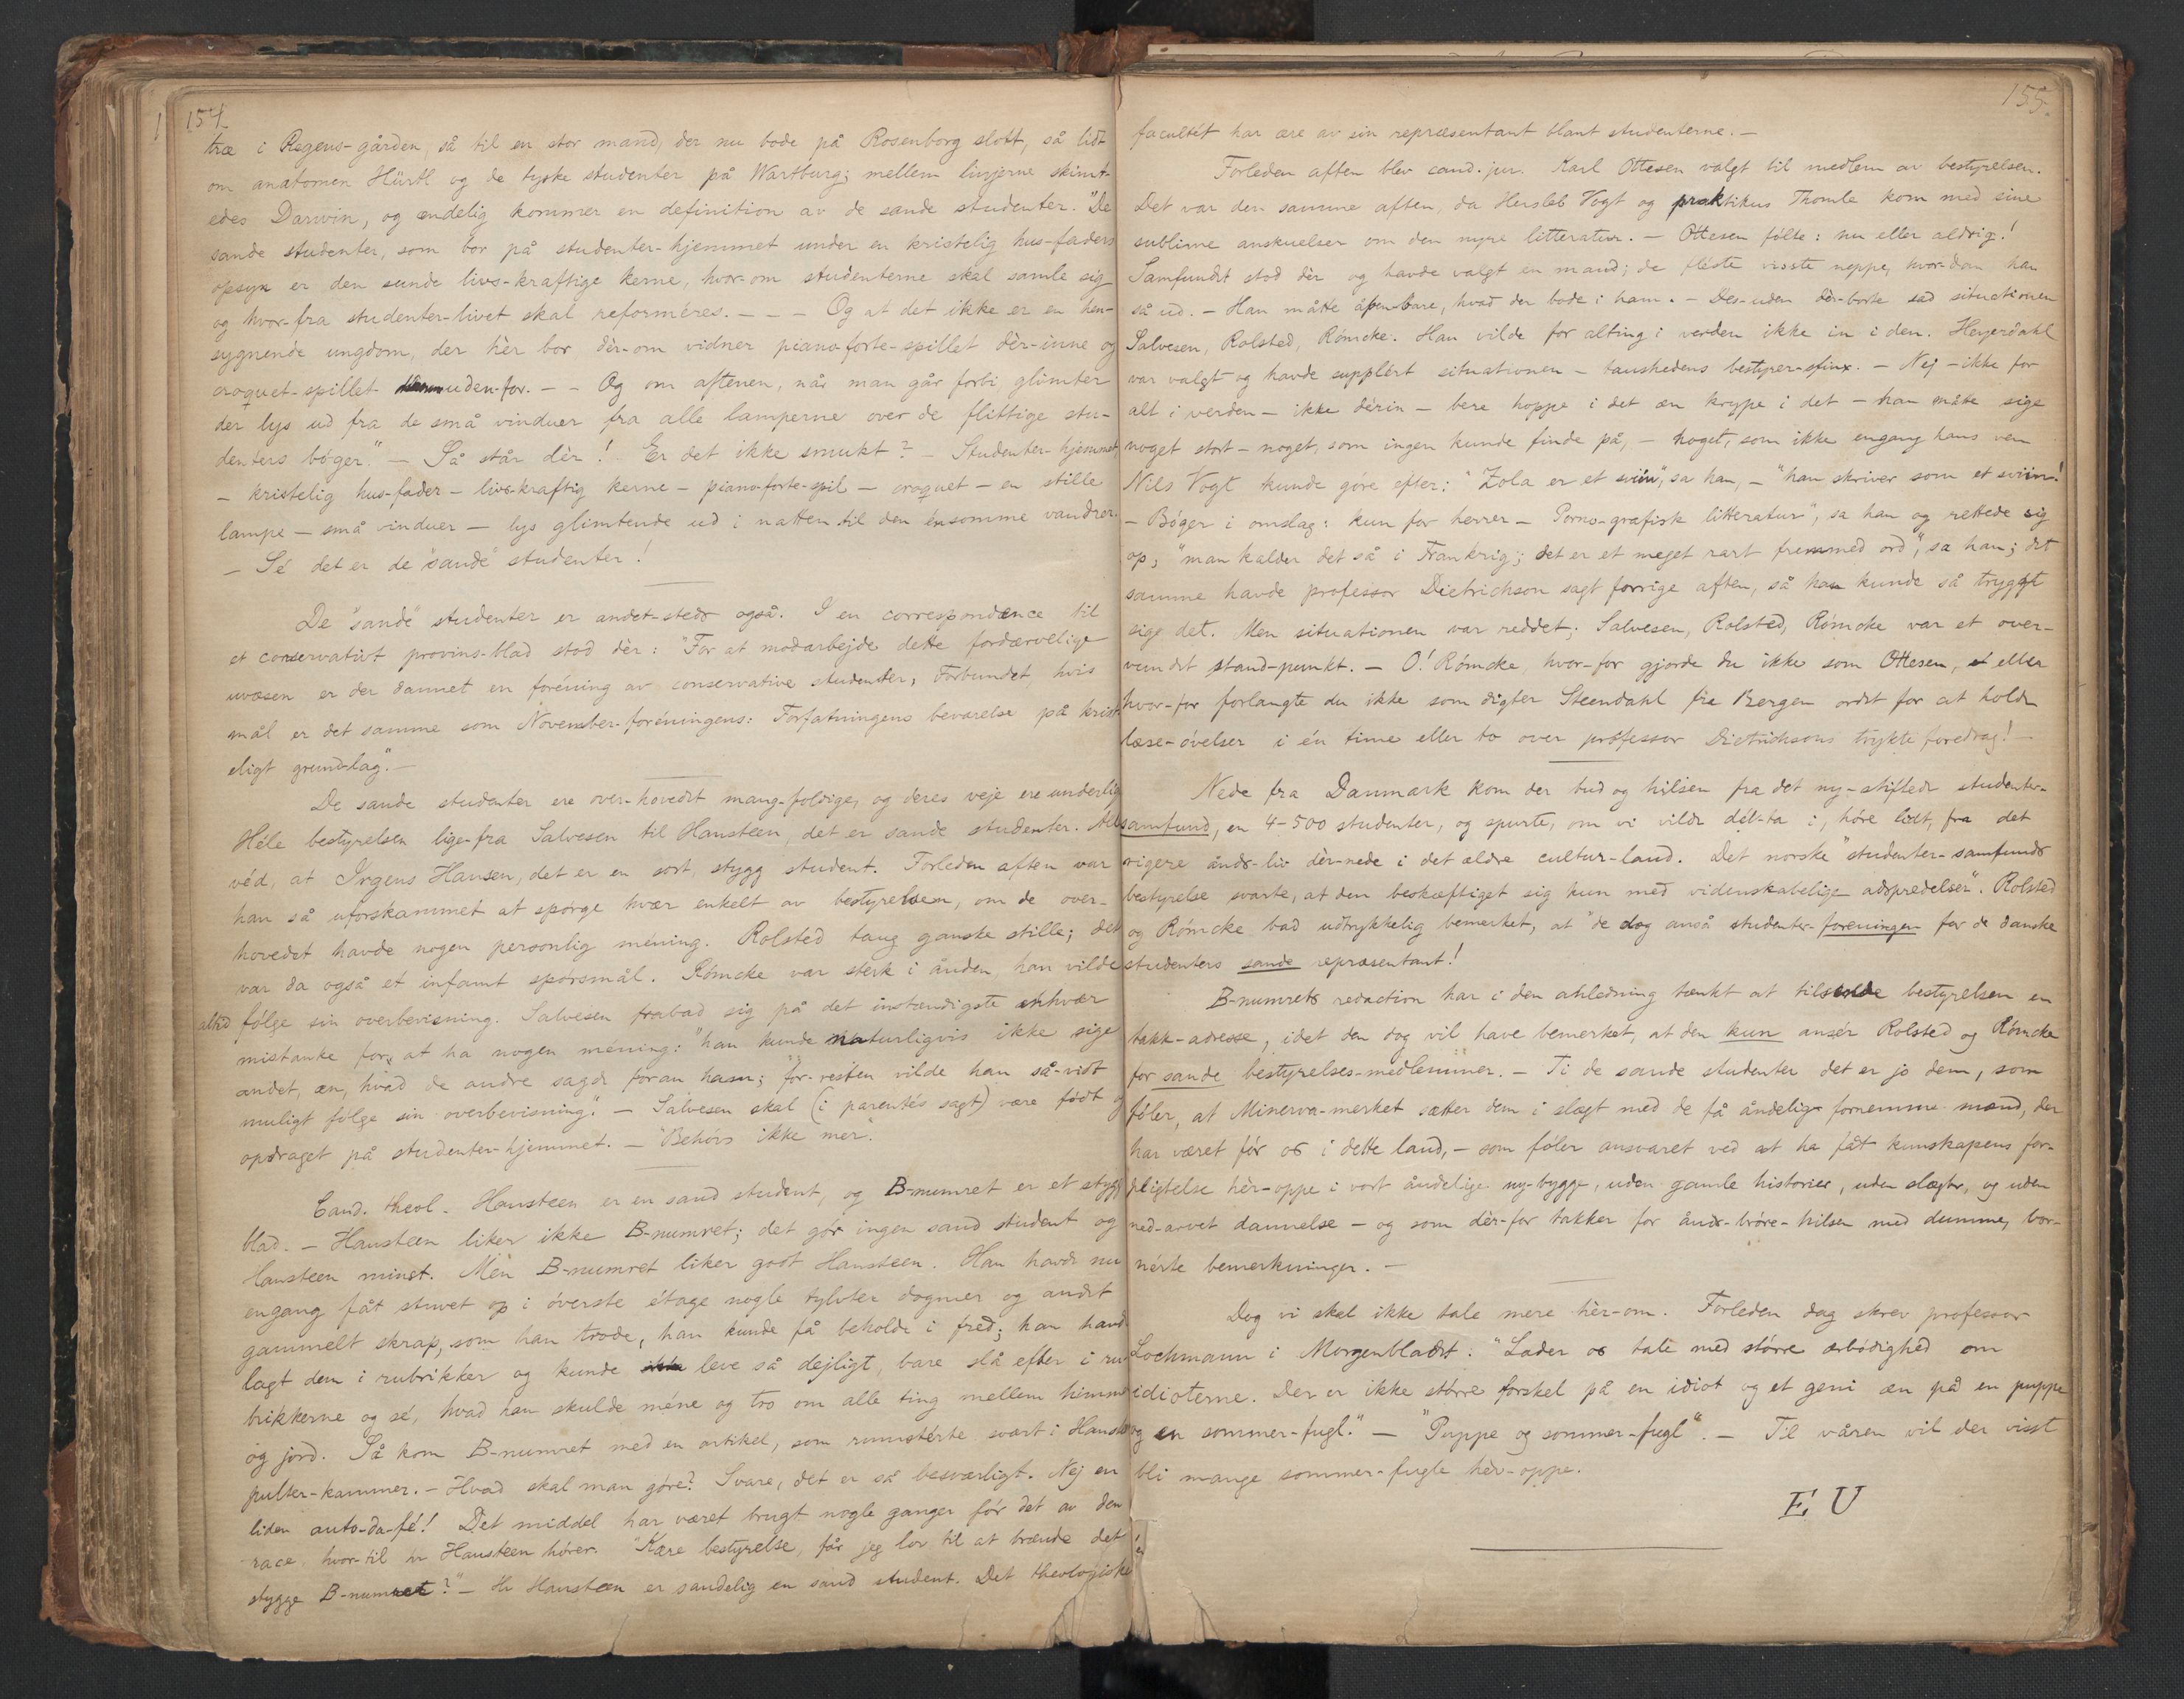 154.
træ i Regens-gården, så til en stor mand, der nu bode på Rosenborg slott, så lidt
om anatomen Hürtl og de tyske studenter på Wartburg; mellem linjerne skimt-
edes Darwin, og ændelig kommer en definition av de sande studenter. "De
sande studenter, som bor på studenter-hjemmet under en kristelig hus-faders
opsyn er den sunde livs-kraftige kerne, hvor-om studenterne skal samle sig
og hvor-fra studenter-livet skal reforméres. - - - Og at det ikke er en hen-
sygnende ungdom, der hèr bor dèr-om vidner piano-forte-spillet dèr-inne og
croquet-spillet uden-for. - - Og om aftenen, når man går forbi, glimter
der lys ud fra de små vinduer fra alle lamperne over de flittige stu-
denters bøger." - Så står dèr! Er det ikke smukt? - Studenter-hjemmet,
- kristelig hus-fader - livs-kraftig kerne - piano-forte-spil - croquet - en stille
lampe - små vinduer - lys glimtende ud i natten til den énsomme vandrer.
- Sé det er de "sande" studenter!
De "sande" studenter er andet-steds også. I en correspondence til
et conservativt provins-blad stod dèr: "For at modarbejde dette fordærvelige
uvæsen er der dannet en foréning av conservative studenter, Forbundet, hvis
mål er det samme som November-foréningens: Forfatningens bevarelse på krist-
eligt grund-lag." -
De sande studenter ere over-hovedet mang-foldige, og deres veje ere underlig
Héle bestyrelsen lige-fra Salvesen til Hansteen, det er sande studenter. Alle
véd, at Irgens Hansen, det er en sort, stygg student. Forleden aften var
han så uforskammet at spørge hvær enkelt av bestyrelsen, om de over-
hovedet havde nogen personlig méning. Rolsted taug ganske stille; det
var da også et infamt spørsmål. Rømcke var sterk i ånden, han vilde
altid følge sin overbevisning. Salvesen frabad sig på det instændigste enhvær
mistanke for, at ha nogen méning: "han kunde naturligvis ikke sige
andet, æn, hvad de andre sagde foran ham; for-resten vilde han så-vidt
muligt følge sin overbevisning." - Salvesen skal (i parentés sagt) være født og
opdraget på studenter-hjemmet. - "Behøvs ikke mer".
Cand. theol. Hansteen er en sand student, og B-numret er et stygg
blad. - Hansteen liker ikke B-numret; det gør ingen sand student og
Hansteen minst. Men B-numret liker godt Hansteen. Han havde nu
engang fåt stuvet op i øverste étage nogle tylvter dogmer og andet
gammelt skrap, som han trode, han kunde få beholde i fred; han havde
lagt dem i rubrikker og kunde leve så dejligt, bare slå efter i ru-
brikkerne og sé, hvad han skulde méne og tro om alle ting mellem himmel
og jord. Så kom B-numret med en artikel, som rumsterte svært i Hansteens
pulter-kammer. - Hvad skal man gøre? Svare, det er så besværligt. Nej en
liden auto-da-fé! Det middel har været brugt nogle ganger før det av den
race, hvor-til hr Hansteen hører. "Kære bestyrelse, får jeg lov til at brænde det
stygge B-numret?" - Hr Hansteen er sandelig en sand student. Det theologiske
155.
facultét har ære av sin repræsentant blant studenterne. -
Forleden aften blev cand. jur. Karl Ottesen valgt til medlem av bestyrelsen.
Det var den samme aften, da Hersleb Vogt og praktikus Thomle kom med sine
sublime anskuelser om den nyre litteratur. - Ottesen følte: nu eller aldrig!
Samfundet stod dèr og havde valgt en mand; de fléste visste neppe, hvor-dan han
så ud. - Han måtte åpen-bare, hvad der bode i ham. - Des-uden dèr-borte sad situationen
Salvesen, Rolsted, Rømcke. Han vilde for alting i verden ikke in i den. Heyerdahl
var valgt og havde supplért situationen - taushedens bestyrer-sfinx. - Nej - ikke for
alt i verden - ikke dérin - bere hoppe i det æn krype i det - han måte sige
noget stort - noget, som ingen kunde finde på, - noget, som ikke engang hans ven
Nils Vogt kunde gøre efter: "Zola er et sviin", sa han, - "han skriver som et sviin!
- Bøger i omslag: kun for herrer - Porno-grafisk litteratur", sa han og rettede sig
op, "man kalder det så i Frankrig; det er et meget rart fremmed ord", sa han; det
samme havde professor Dietrichson sagt forrige aften, så han kunde så tryggt
sige det. Men situationen var reddet; Salvesen, Rolsted, Rømcke var et over-
vundet stand-punkt. - O! Rømcke, hvor-for gjorde du ikke som Ottesen, eller
hvor-for forlangte du ikke som digter Steendahl fra Bergen ordet for at holde
læse-øvelser i én time eller to over professor Dietrichsons trykte foredrag! -
Nede fra Danmark kom der bud og hilsen fra det ny-stiftede studenter-
samfund, en 4-500 studenter, og spurte, om vi vilde dél-ta i, høre lidt, fra det
rigere ånds-liv dèr-nede i det ældre cultur-land. Det norske "studenter-samfunds
bestyrelse svarte, at den beskæftiget sig kun med videnskabelige adspredelser". Rolsted
og Rømcke bad udtrykkelig bemerket, at "de dog anså studenter-foreningen for de danske
studenters sande repræsentant!
B-numrets redaction har i den anledning tænkt at tilsende bestyrelsen en
takk-adresse, idet den dog vil have bemerket, at den kun ansér Rolsted og Rømcke
for sande bestyrelses-medlemmer. - Ti de sande studenter det er jo dem, som
føler, at Minerva-merket sætter dem i slægt med de få åndelig fornemme mænd, der
har været før os i dette land, - som føler ansvaret ved at ha fåt kunskapens for-
pligtelse hèr-oppe i vort åndelige ny-bygge, uden gamle historier, uden slægter, og uden
ned-arvet dannelse - og som dèr-for takker for ånds-brøre-hilsen med dumme, bor-
nérte bemerkninger. -
Dog vi skal ikke tale mere hèr-om. Forleden dag skrev professor
Lochmann i Morgenbladet: "Lader os tale med større ærbødighed om
idioterne. Der er ikke større forskel på en idiot og et geni æn på en puppe
og en sommer-fugl." - "Puppe og sommer-fugl". - Til våren vil der visst
bli mange sommer-fugle hèr-oppe.
E U